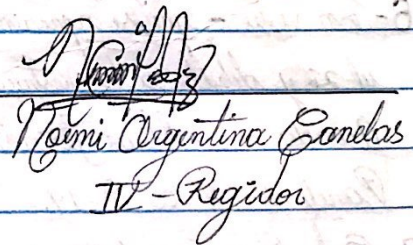 Noemi Argentina Canelas
IV - Regidor